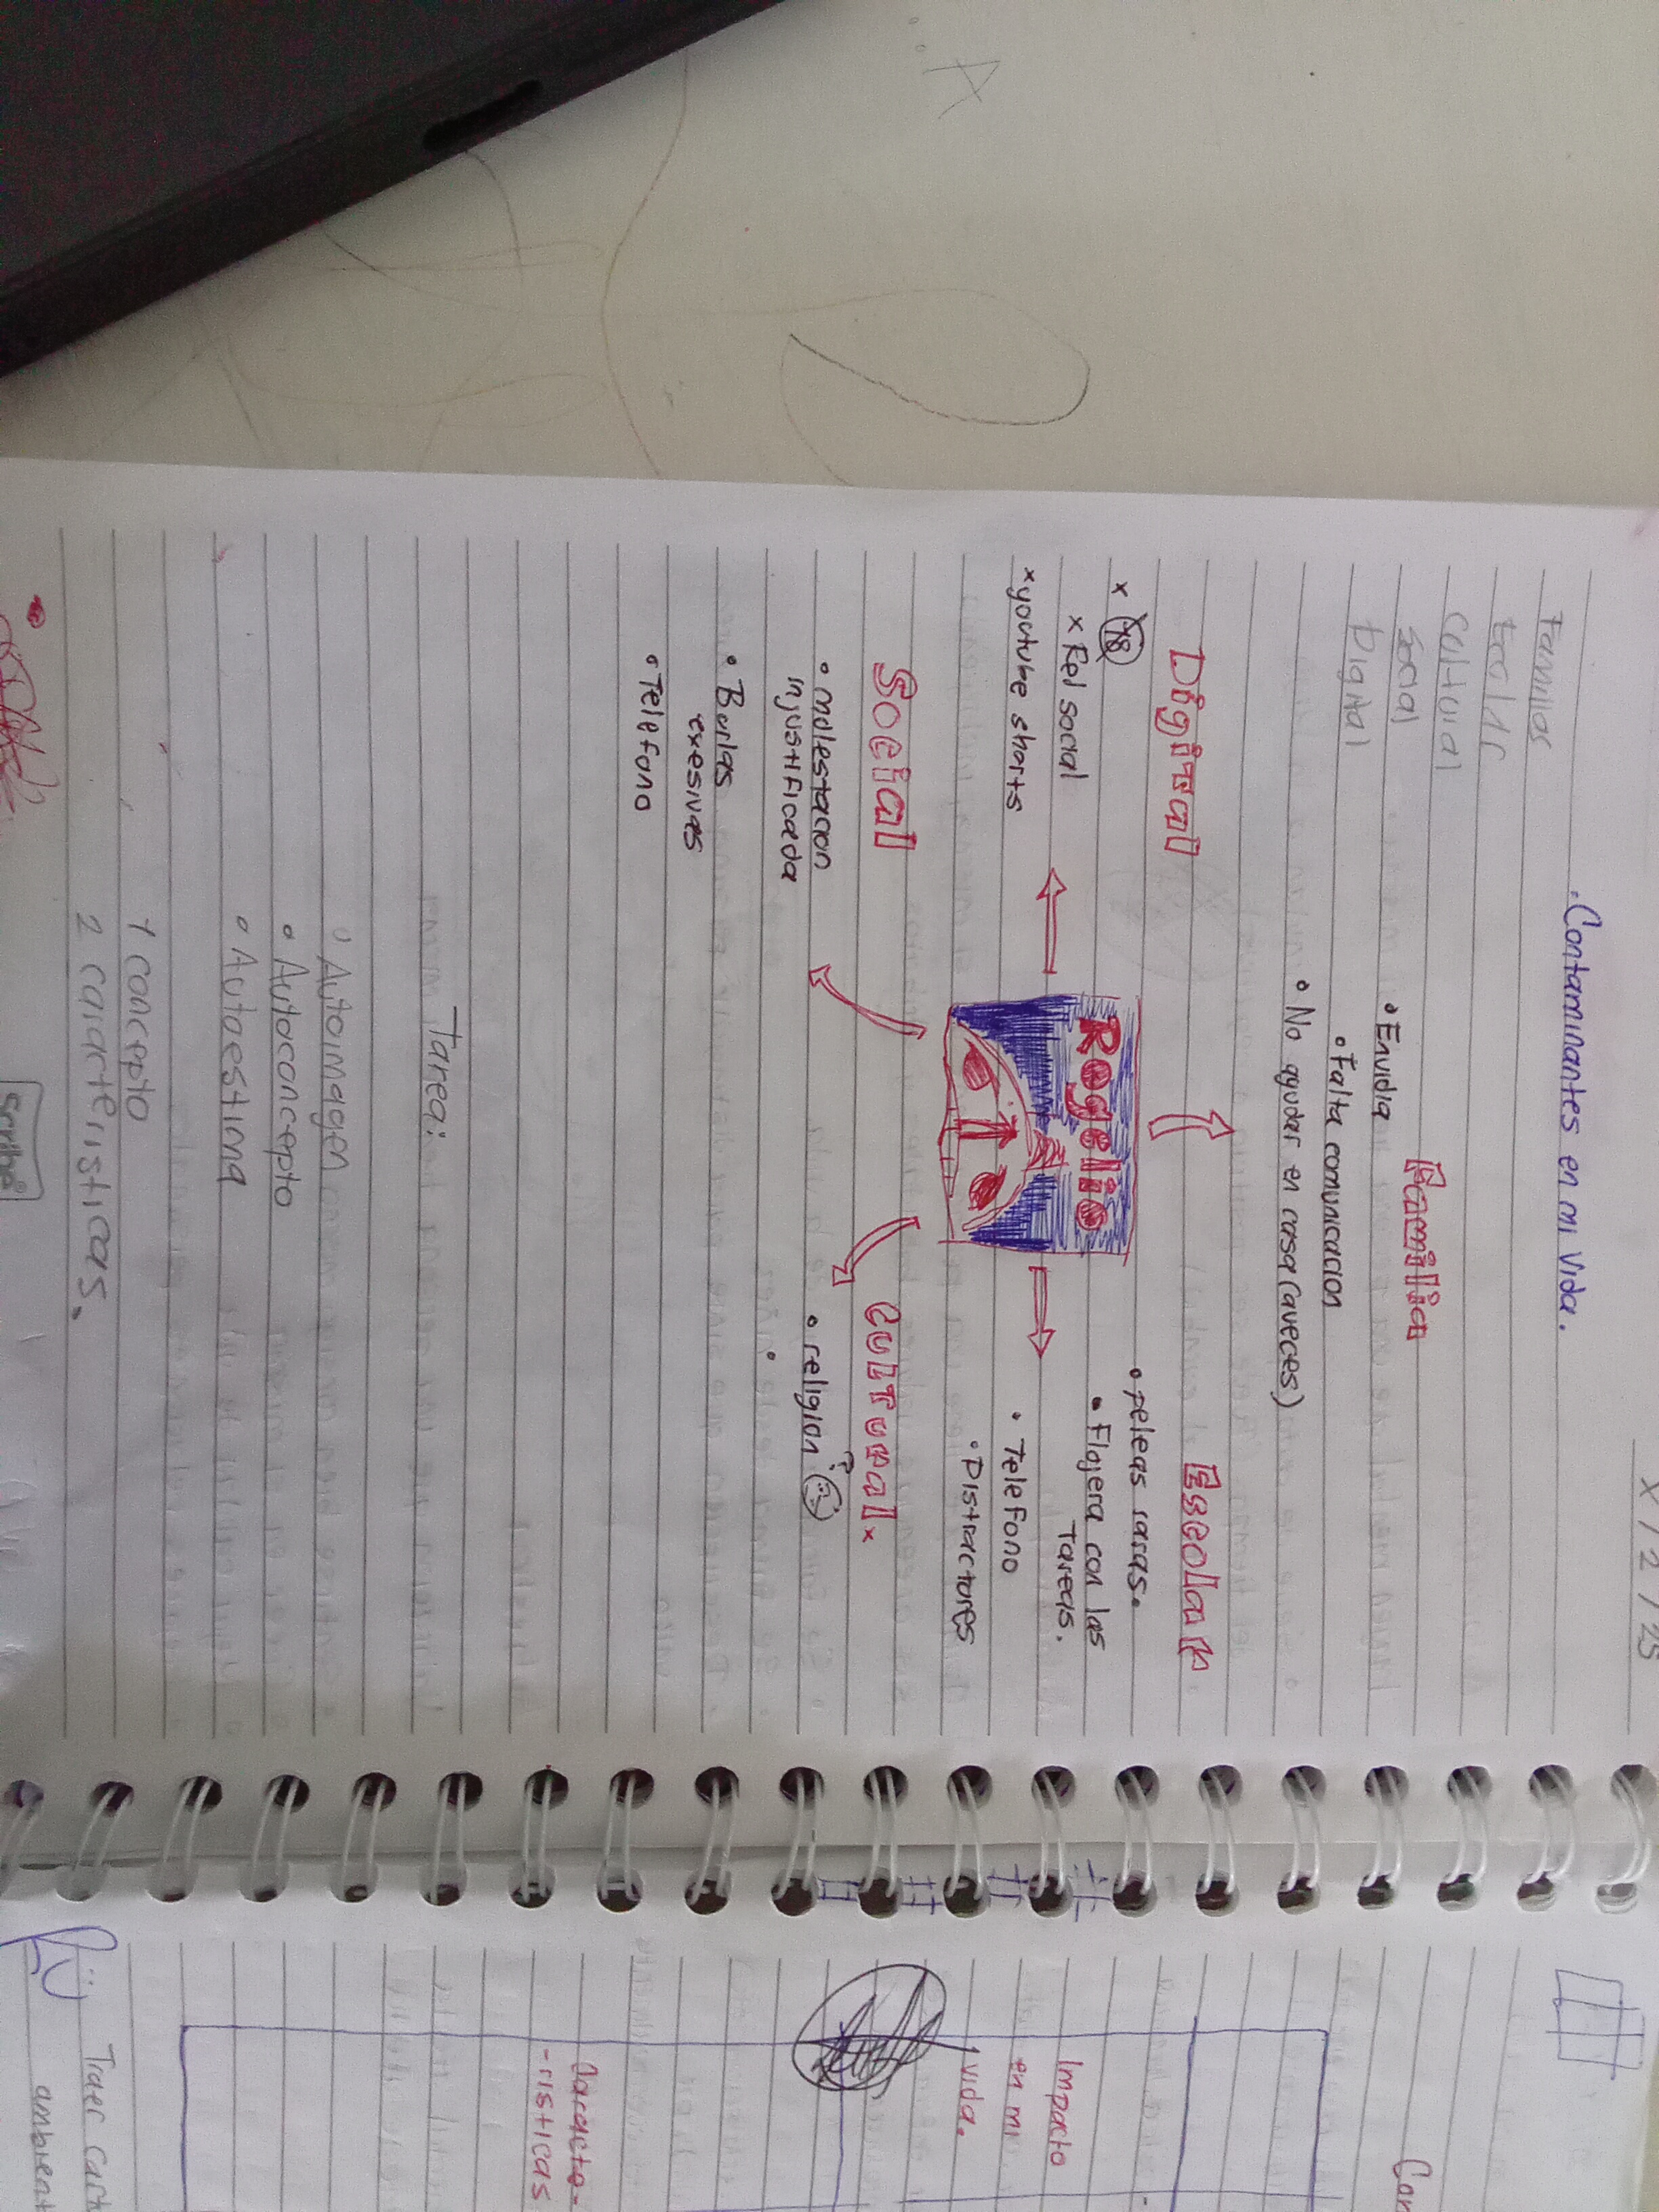 X / 2 / 25
• Contaminantes en mi vida.
Familiar
Escolar
Cultural
Social
Digital
Familia
• Envidia
• Falta comunicacion
• No ayudar en casa (aveces)
Digital
x +18
x Rel social
x youtube shorts
Rogelio
Escolar
• peleas raras.
• Flojera con las
Tareas.
• Telefono
• Distractores
Social
• molestacion
injustificada
• Burlas
exesivas
• Telefono
Cultural x
• religion ?
•
Tarea:
• Autoimagen
• Autoconcepto
• Autoestima
1 concepto
2 carácteristicas.
Scribe
Impacto
en mi
vida.
Caracte-
-risticas
Traer cart
ambient
Con